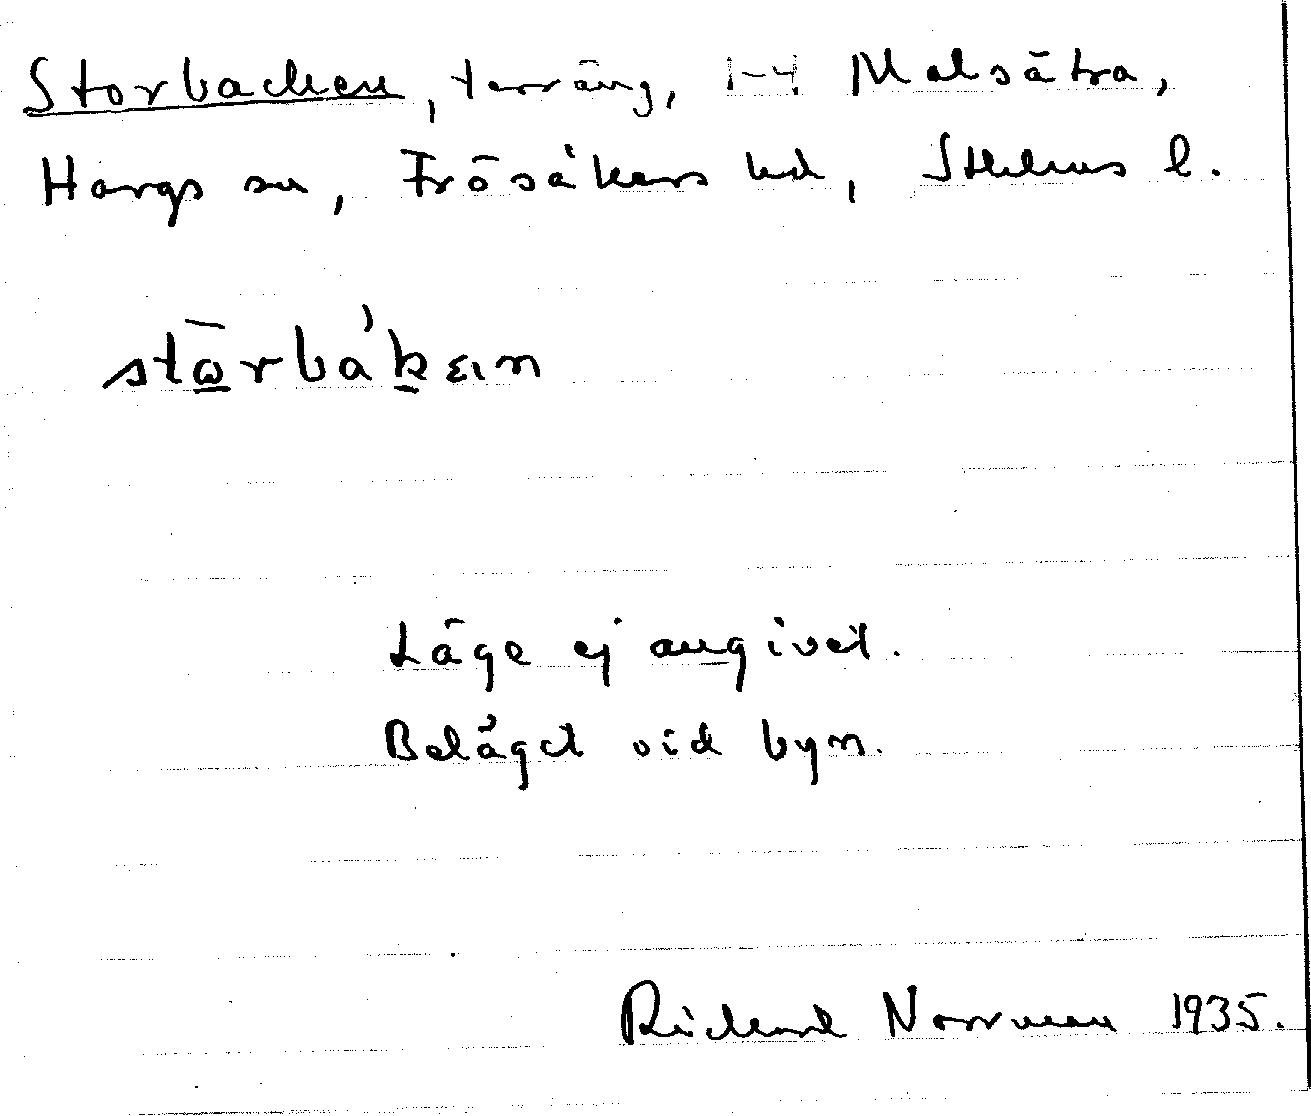 Storbacken, terräng, 1-4 Malsätra,
Hargs sn, Frösåkers hd, Sthlms l.
stωrbákεın
Läge ej angivet.
Beläget vid byn.
Richard Norrman 1935.